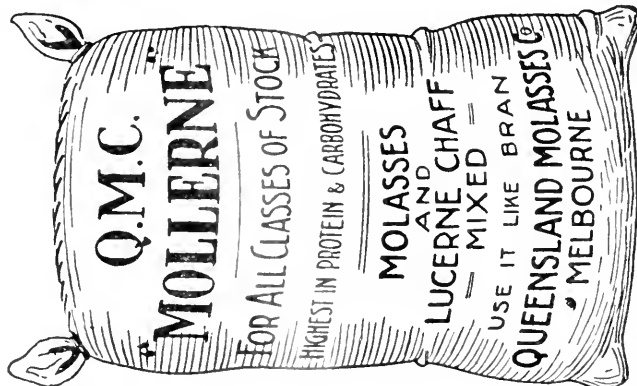 Q.M.C.
"MOLLERNE"
FOR ALL CLASSES OF STOCK
HIGHEST IN PROTEIN & CARBOHYDRATES
MOLASSES
AND
LUCERNE CHAFF
— MIXED —
USE IT LIKE BRAN
QUEENSLAND MOLASSES Co.
MELBOURNE